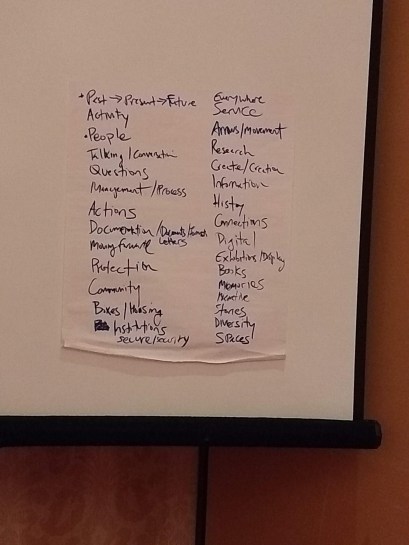 • Past → Present → Future
Activity
• People
Talking / Conversation
Questions
Management / Process
Actions
Documentation / Documents /
Letters
Moving forward
Protection
Community
Boxes / Housing
Institutions
secure/security
Everywhere
Service
Arrows/movement
Research
Create/Creation
Information
History
Connections
Digital
Exhibitions/Display
Books
Memories
Narrative
Stories
Diversity
Spaces